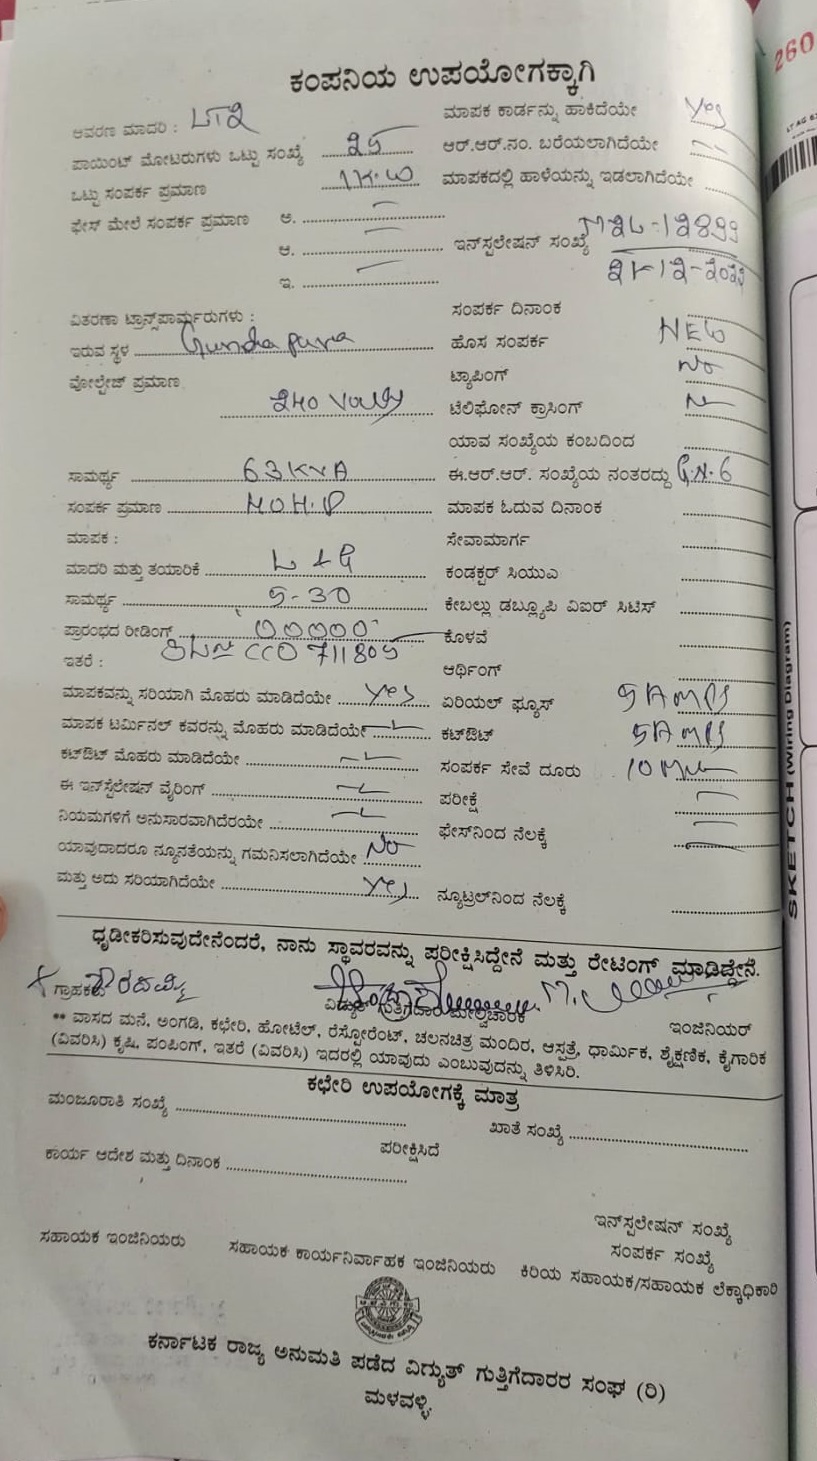 260
ಕಂಪನಿಯ ಉಪಯೋಗಕ್ಕಾಗಿ
ಆವರಣ ಮಾದರಿ : LT2 ಮಾಪಕ ಕಾರ್ಡನ್ನು ಹಾಕಿದೆಯೇ Yes
ಪಾಯಿಂಟ್ ಮೋಟರುಗಳು ಒಟ್ಟು ಸಂಖ್ಯೆ 25 ಆರ್.ಆರ್.ನಂ. ಬರೆಯಲಾಗಿದೆಯೇ
ಒಟ್ಟು ಸಂಪರ್ಕ ಪ್ರಮಾಣ 1K.W ಮಾಪಕದಲ್ಲಿ ಹಾಳೆಯನ್ನು ಇಡಲಾಗಿದೆಯೇ
ಫೇಸ್ ಮೇಲೆ ಸಂಪರ್ಕ ಪ್ರಮಾಣ ಅ.
ಆ. ಇನ್‌ಸ್ಟಲೇಷನ್ ಸಂಖ್ಯೆ
ಇ.
ಸಂಪರ್ಕ ದಿನಾಂಕ
ವಿತರಣಾ ಟ್ರಾನ್ಸ್‌ಪಾರ್ಮರುಗಳು :
ಇರುವ ಸ್ಥಳ ಹೊಸ ಸಂಪರ್ಕ NEW
ವೋಲ್ಟೇಜ್ ಪ್ರಮಾಣ ಟ್ಯಾಪಿಂಗ್ No
240 Volts ಟೆಲಿಫೋನ್ ಕ್ರಾಸಿಂಗ್
ಯಾವ ಸಂಖ್ಯೆಯ ಕಂಬದಿಂದ
ಸಾಮರ್ಥ್ಯ 63KVA ಈ.ಆರ್.ಆರ್. ಸಂಖ್ಯೆಯ ನಂತರದ್ದು G.N.6
ಸಂಪರ್ಕ ಪ್ರಮಾಣ ಮಾಪಕ ಓದುವ ದಿನಾಂಕ
ಮಾಪಕ : ಸೇವಾಮಾರ್ಗ
ಮಾದರಿ ಮತ್ತು ತಯಾರಿಕೆ L&G ಕಂಡಕ್ಟರ್ ಸಿಯುಎ
ಸಾಮರ್ಥ್ಯ 5-30 ಕೇಬಲ್ಲು ಡಬ್ಲ್ಯೂಪಿ ವಿಐರ್ ಸಿಟಿಸ್
ಪ್ರಾರಂಭದ ರೀಡಿಂಗ್ 00000 ಕೊಳವೆ
ಇತರೆ : CCO 711805 ಆರ್ಥಿಂಗ್
ಮಾಪಕವನ್ನು ಸರಿಯಾಗಿ ಮೊಹರು ಮಾಡಿದೆಯೇ Yes ಏರಿಯಲ್ ಫ್ಯೂಸ್ 5 AMPS
ಮಾಪಕ ಟರ್ಮಿನಲ್ ಕವರನ್ನು ಮೊಹರು ಮಾಡಿದೆಯೇ ಕಟ್‌ಔಟ್ 5 AMPS
ಕಟ್‌ಔಟ್ ಮೊಹರು ಮಾಡಿದೆಯೇ ಸಂಪರ್ಕ ಸೇವೆ ದೂರು 10
ಈ ಇನ್‌ಸ್ಟೆಲೇಷನ್ ವೈರಿಂಗ್ ಪರೀಕ್ಷೆ
ನಿಯಮಗಳಿಗೆ ಅನುಸಾರವಾಗಿದೆರಯೇ ಫೇಸ್‌ನಿಂದ ನೆಲಕ್ಕೆ
ಯಾವುದಾದರೂ ನ್ಯೂನತೆಯನ್ನು ಗಮನಿಸಲಾಗಿದೆಯೇ No
ಮತ್ತು ಅದು ಸರಿಯಾಗಿದೆಯೇ Yes ನ್ಯೂಟ್ರಲ್‌ನಿಂದ ನೆಲಕ್ಕೆ
ಧೃಡೀಕರಿಸುವುದೇನೆಂದರೆ, ನಾನು ಸ್ಥಾವರವನ್ನು ಪರೀಕ್ಷಿಸಿದ್ದೇನೆ ಮತ್ತು ರೇಟಿಂಗ್ ಮಾಡಿದ್ದೇನೆ.
ಗ್ರಾಹಕರು ವಿದ್ಯುತ್ ಗುತ್ತಿಗೆದಾರ ಮೇಲ್ವಿಚಾರಕ ಇಂಜಿನಿಯರ್
** ವಾಸದ ಮನೆ, ಅಂಗಡಿ, ಕಛೇರಿ, ಹೋಟೆಲ್, ರೆಸ್ಟೋರೆಂಟ್, ಚಲನಚಿತ್ರ ಮಂದಿರ, ಆಸ್ಪತ್ರೆ, ಧಾರ್ಮಿಕ, ಶೈಕ್ಷಣಿಕ, ಕೈಗಾರಿಕ
(ವಿವರಿಸಿ) ಕೃಷಿ, ಪಂಪಿಂಗ್, ಇತರೆ (ವಿವರಿಸಿ) ಇದರಲ್ಲಿ ಯಾವುದು ಎಂಬುವುದನ್ನು ತಿಳಿಸಿರಿ.
ಕಛೇರಿ ಉಪಯೋಗಕ್ಕೆ ಮಾತ್ರ
ಮಂಜೂರಾತಿ ಸಂಖ್ಯೆ ಖಾತೆ ಸಂಖ್ಯೆ
ಪರೀಕ್ಷಿಸಿದೆ
ಕಾರ್ಯ ಆದೇಶ ಮತ್ತು ದಿನಾಂಕ
ಇನ್‌ಸ್ಟಲೇಷನ್ ಸಂಖ್ಯೆ
ಸಂಪರ್ಕ ಸಂಖ್ಯೆ
ಸಹಾಯಕ ಇಂಜಿನಿಯರು ಸಹಾಯಕ ಕಾರ್ಯನಿರ್ವಾಹಕ ಇಂಜಿನಿಯರು ಕಿರಿಯ ಸಹಾಯಕ/ಸಹಾಯಕ ಲೆಕ್ಕಾಧಿಕಾರಿ
ಕರ್ನಾಟಕ ರಾಜ್ಯ ಅನುಮತಿ ಪಡೆದ ವಿದ್ಯುತ್ ಗುತ್ತಿಗೆದಾರರ ಸಂಘ (ರಿ)
ಮಳವಳ್ಳಿ
SKETCH (Wiring Diagram)